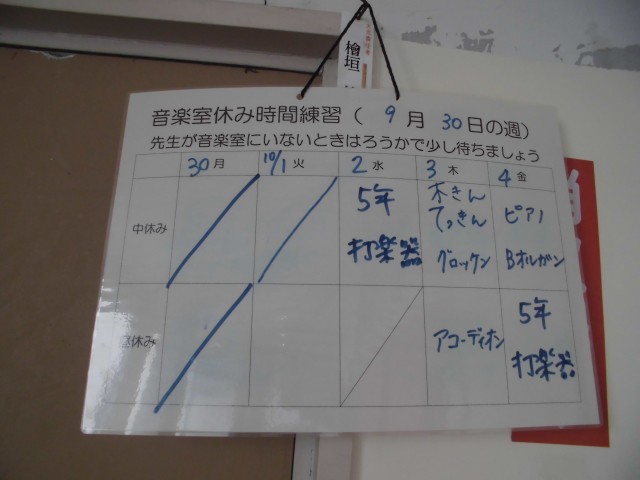 檜垣
音楽室休み時間練習（ 9 月 30 日の週）
先生が音楽室にいないときはろうかで少し待ちましょう
30 月 10/1 火 2 水 3 木 4 金
中休み 5年 打楽器 木きん てっきん グロッケン ピアノ Bオルガン
昼休み アコーディオン 5年 打楽器